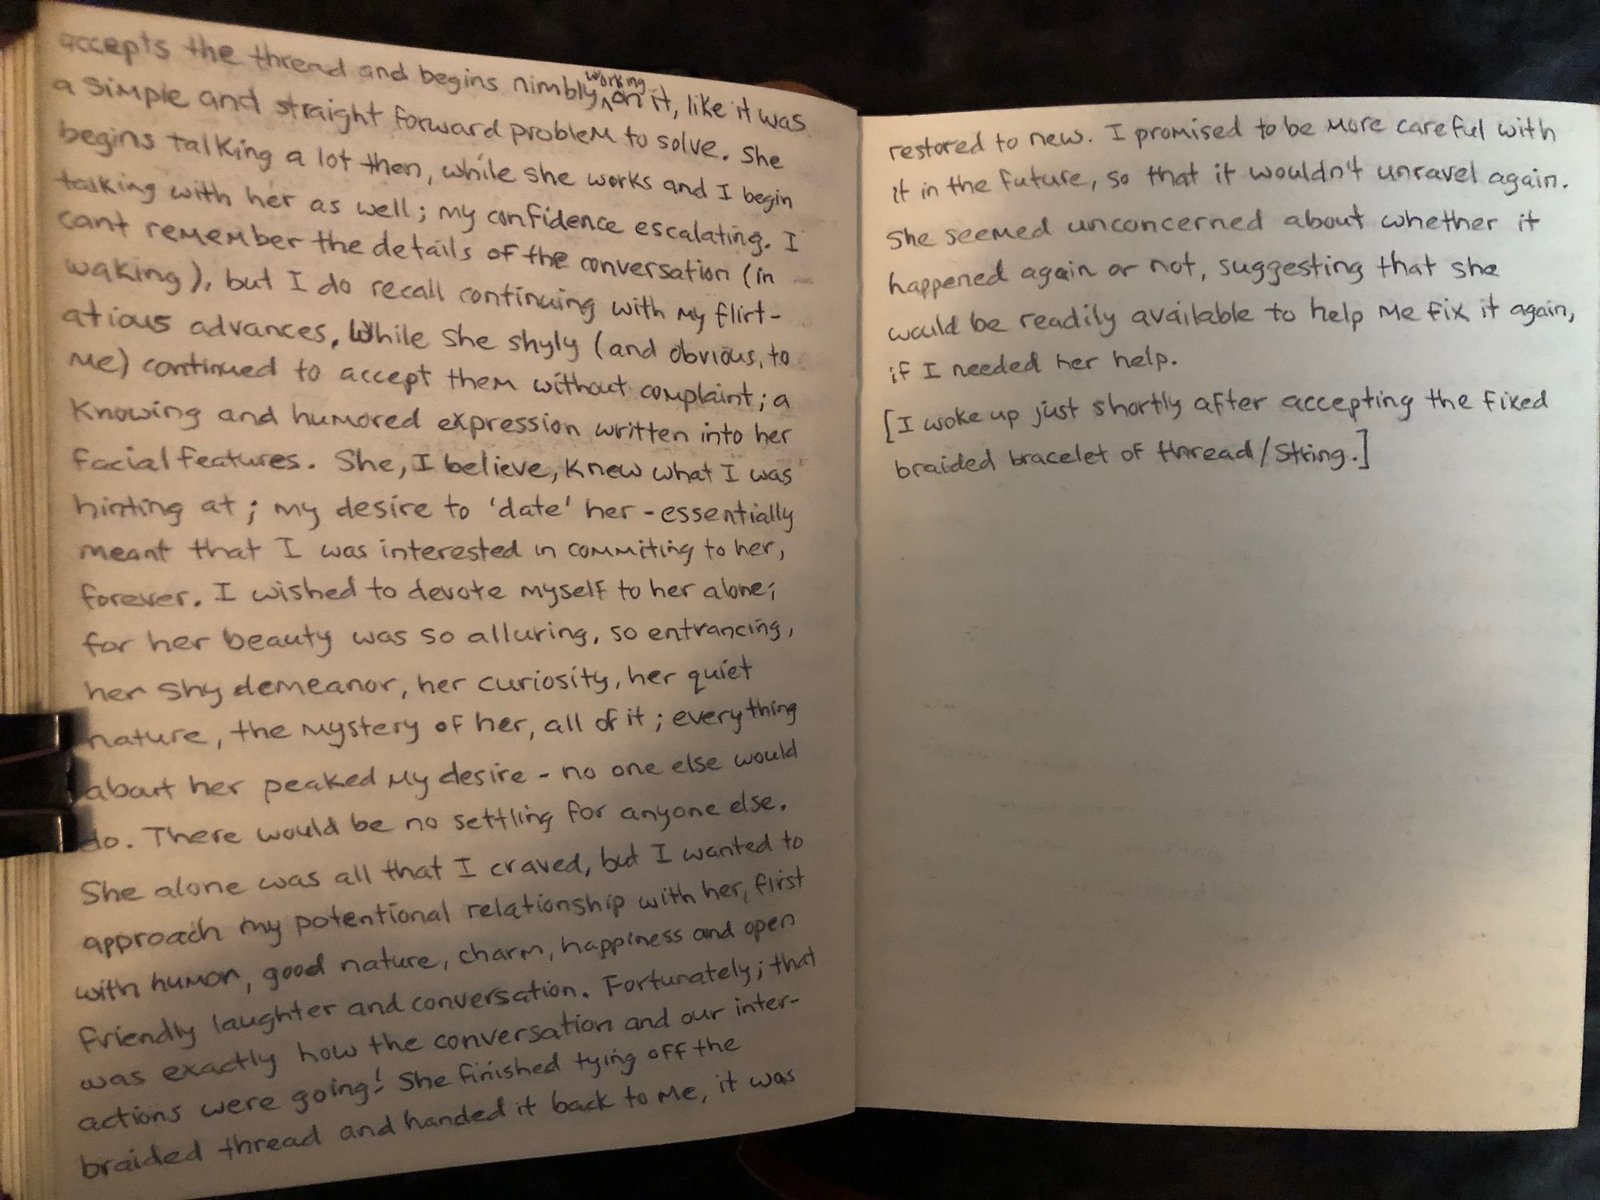 accepts the thread and begins nimbly working on it, like it was
a simple and straight forward problem to solve. She
begins talking a lot then, while she works and I begin
talking with her as well; my confidence escalating. I
cant remember the details of the conversation (in
waking), but I do recall continuing with my flirt-
atious advances, While she shyly (and obvious, to
me) continued to accept them without complaint; a
knowing and humored expression written into her
facial features. She, I believe, knew what I was
hinting at; my desire to 'date' her - essentially
meant that I was interested in commiting to her,
forever. I wished to devote myself to her alone;
for her beauty was so alluring, so entrancing,
her shy demeanor, her curiosity, her quiet
nature, the mystery of her, all of it; everything
about her peaked my desire - no one else would
do. There would be no settling for anyone else.
She alone was all that I craved, but I wanted to
approach my potentional relationship with her, first
with humor, good nature, charm, happiness and open
friendly laughter and conversation. Fortunately; that
was exactly how the conversation and our inter-
actions were going! She finished tying off the
braided thread and handed it back to me, it was
restored to new. I promised to be more careful with
it in the future, so that it wouldn't unravel again.
She seemed unconcerned about whether it
happened again or not, suggesting that she
would be readily available to help me fix it again,
if I needed her help.
[I woke up just shortly after accepting the fixed
braided bracelet of thread/string.]